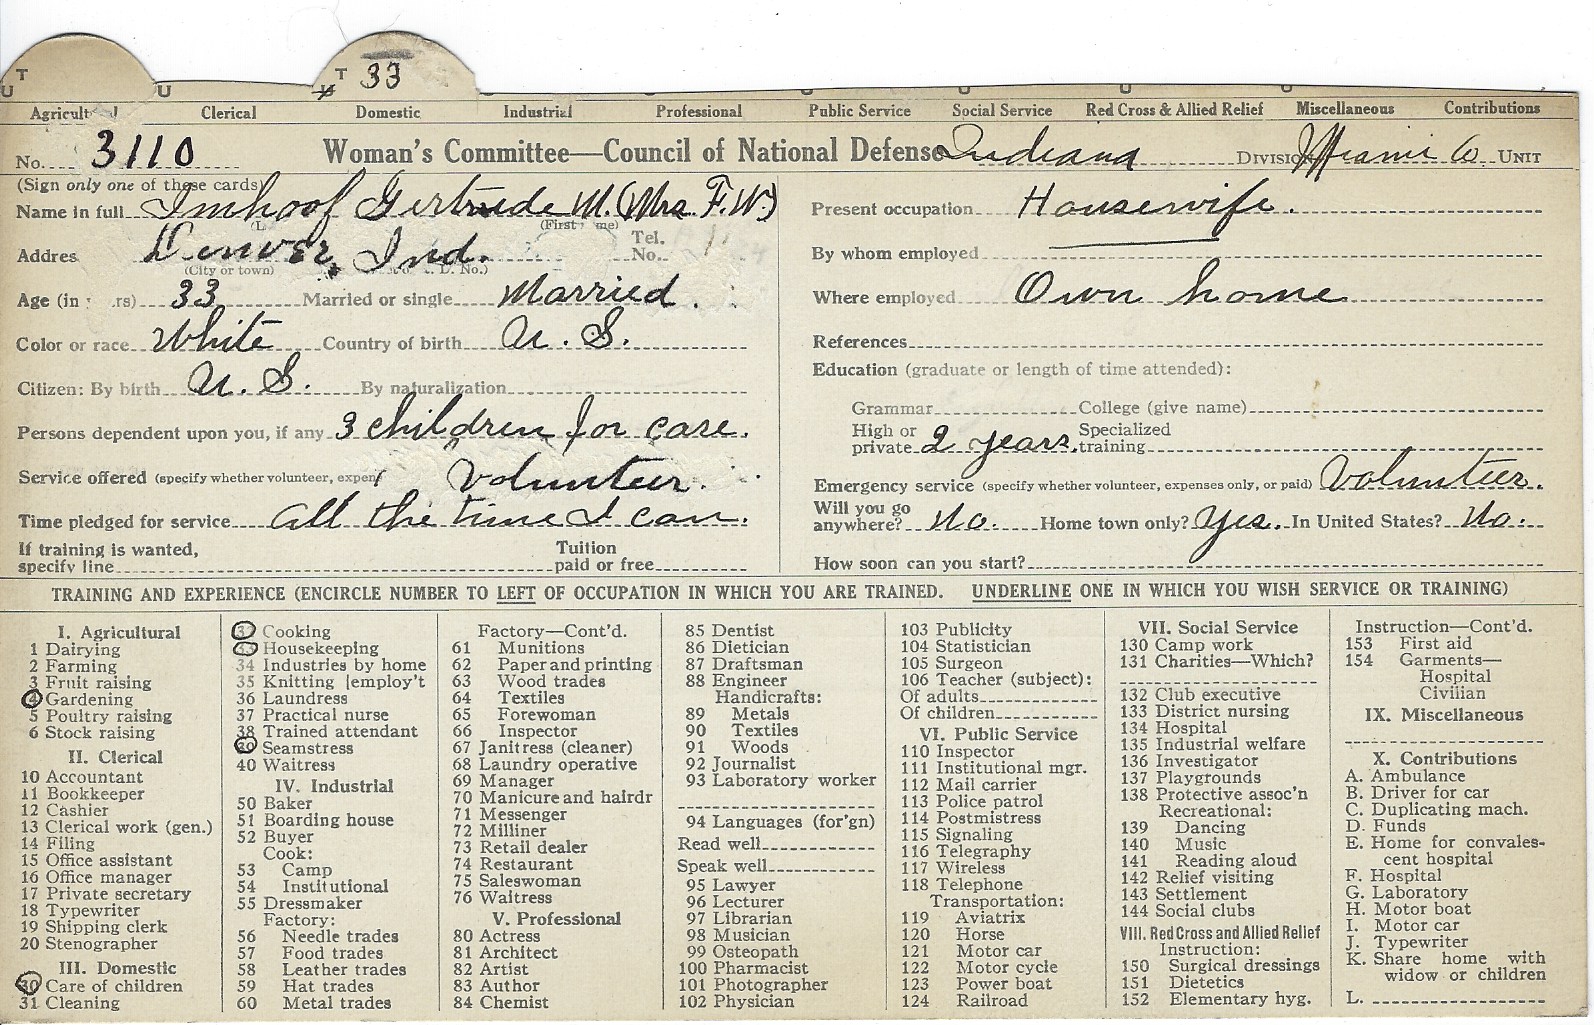 T U U T U 33 U U U
Agricult l Clerical Domestic Industrial Professional Public Service Social Service Red Cross & Allied Relief Miscellaneous Contributions
No. 3110 Woman's Committee—Council of National Defense Indiana DIVISION Miami Co. UNIT
(Sign only one of these cards)
Name in full Imhoof Gertrude M. (Mrs F. W.)
(First me) Tel. No.
Addres Denver, Ind.
(City or town) D. No.)
Age (in rs) 33 Married or single Married.
Color or race White Country of birth U. S.
Citizen: By birth U. S. By naturalization
Persons dependent upon you, if any 3 children for care.
Service offered (specify whether volunteer, expen Volunteer.
Time pledged for service all the time I can.
If training is wanted, specify line Tuition paid or free
Present occupation Housewife.
By whom employed
Where employed Own home
References
Education (graduate or length of time attended):
Grammar College (give name)
High or private 2 years. Specialized training
Emergency service (specify whether volunteer, expenses only, or paid) Volunteer.
Will you go anywhere? No. Home town only? Yes. In United States? No.
How soon can you start?
TRAINING AND EXPERIENCE (ENCIRCLE NUMBER TO LEFT OF OCCUPATION IN WHICH YOU ARE TRAINED. UNDERLINE ONE IN WHICH YOU WISH SERVICE OR TRAINING)
I. Agricultural
1 Dairying
2 Farming
3 Fruit raising
4 Gardening
5 Poultry raising
6 Stock raising
II. Clerical
10 Accountant
11 Bookkeeper
12 Cashier
13 Clerical work (gen.)
14 Filing
15 Office assistant
16 Office manager
17 Private secretary
18 Typewriter
19 Shipping clerk
20 Stenographer
III. Domestic
30 Care of children
31 Cleaning
32 Cooking
33 Housekeeping
34 Industries by home
35 Knitting [employ't
36 Laundress
37 Practical nurse
38 Trained attendant
39 Seamstress
40 Waitress
IV. Industrial
50 Baker
51 Boarding house
52 Buyer
Cook:
53 Camp
54 Institutional
55 Dressmaker
Factory:
56 Needle trades
57 Food trades
58 Leather trades
59 Hat trades
60 Metal trades
Factory—Cont'd.
61 Munitions
62 Paper and printing
63 Wood trades
64 Textiles
65 Forewoman
66 Inspector
67 Janitress (cleaner)
68 Laundry operative
69 Manager
70 Manicure and hairdr
71 Messenger
72 Milliner
73 Retail dealer
74 Restaurant
75 Saleswoman
76 Waitress
V. Professional
80 Actress
81 Architect
82 Artist
83 Author
84 Chemist
85 Dentist
86 Dietician
87 Draftsman
88 Engineer
Handicrafts:
89 Metals
90 Textiles
91 Woods
92 Journalist
93 Laboratory worker
94 Languages (for'gn)
Read well
Speak well
95 Lawyer
96 Lecturer
97 Librarian
98 Musician
99 Osteopath
100 Pharmacist
101 Photographer
102 Physician
103 Publicity
104 Statistician
105 Surgeon
106 Teacher (subject):
Of adults
Of children
VI. Public Service
110 Inspector
111 Institutional mgr.
112 Mail carrier
113 Police patrol
114 Postmistress
115 Signaling
116 Telegraphy
117 Wireless
118 Telephone
Transportation:
119 Aviatrix
120 Horse
121 Motor car
122 Motor cycle
123 Power boat
124 Railroad
VII. Social Service
130 Camp work
131 Charities—Which?
132 Club executive
133 District nursing
134 Hospital
135 Industrial welfare
136 Investigator
137 Playgrounds
138 Protective assoc'n
Recreational:
139 Dancing
140 Music
141 Reading aloud
142 Relief visiting
143 Settlement
144 Social clubs
VIII. Red Cross and Allied Relief
Instruction:
150 Surgical dressings
151 Dietetics
152 Elementary hyg.
Instruction—Cont'd.
153 First aid
154 Garments—
Hospital
Civilian
IX. Miscellaneous
X. Contributions
A. Ambulance
B. Driver for car
C. Duplicating mach.
D. Funds
E. Home for convales-
cent hospital
F. Hospital
G. Laboratory
H. Motor boat
I. Motor car
J. Typewriter
K. Share home with
widow or children
L.